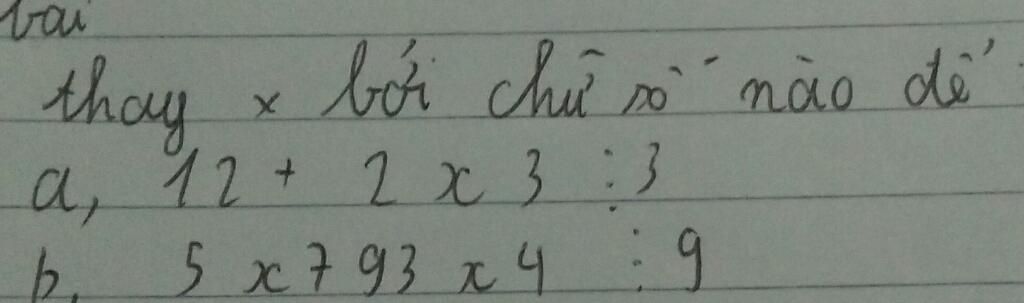 bài
thay x bởi chữ số nào để
a, 12 + 2x3 ⋮ 3
b, 5x793x4 ⋮ 9